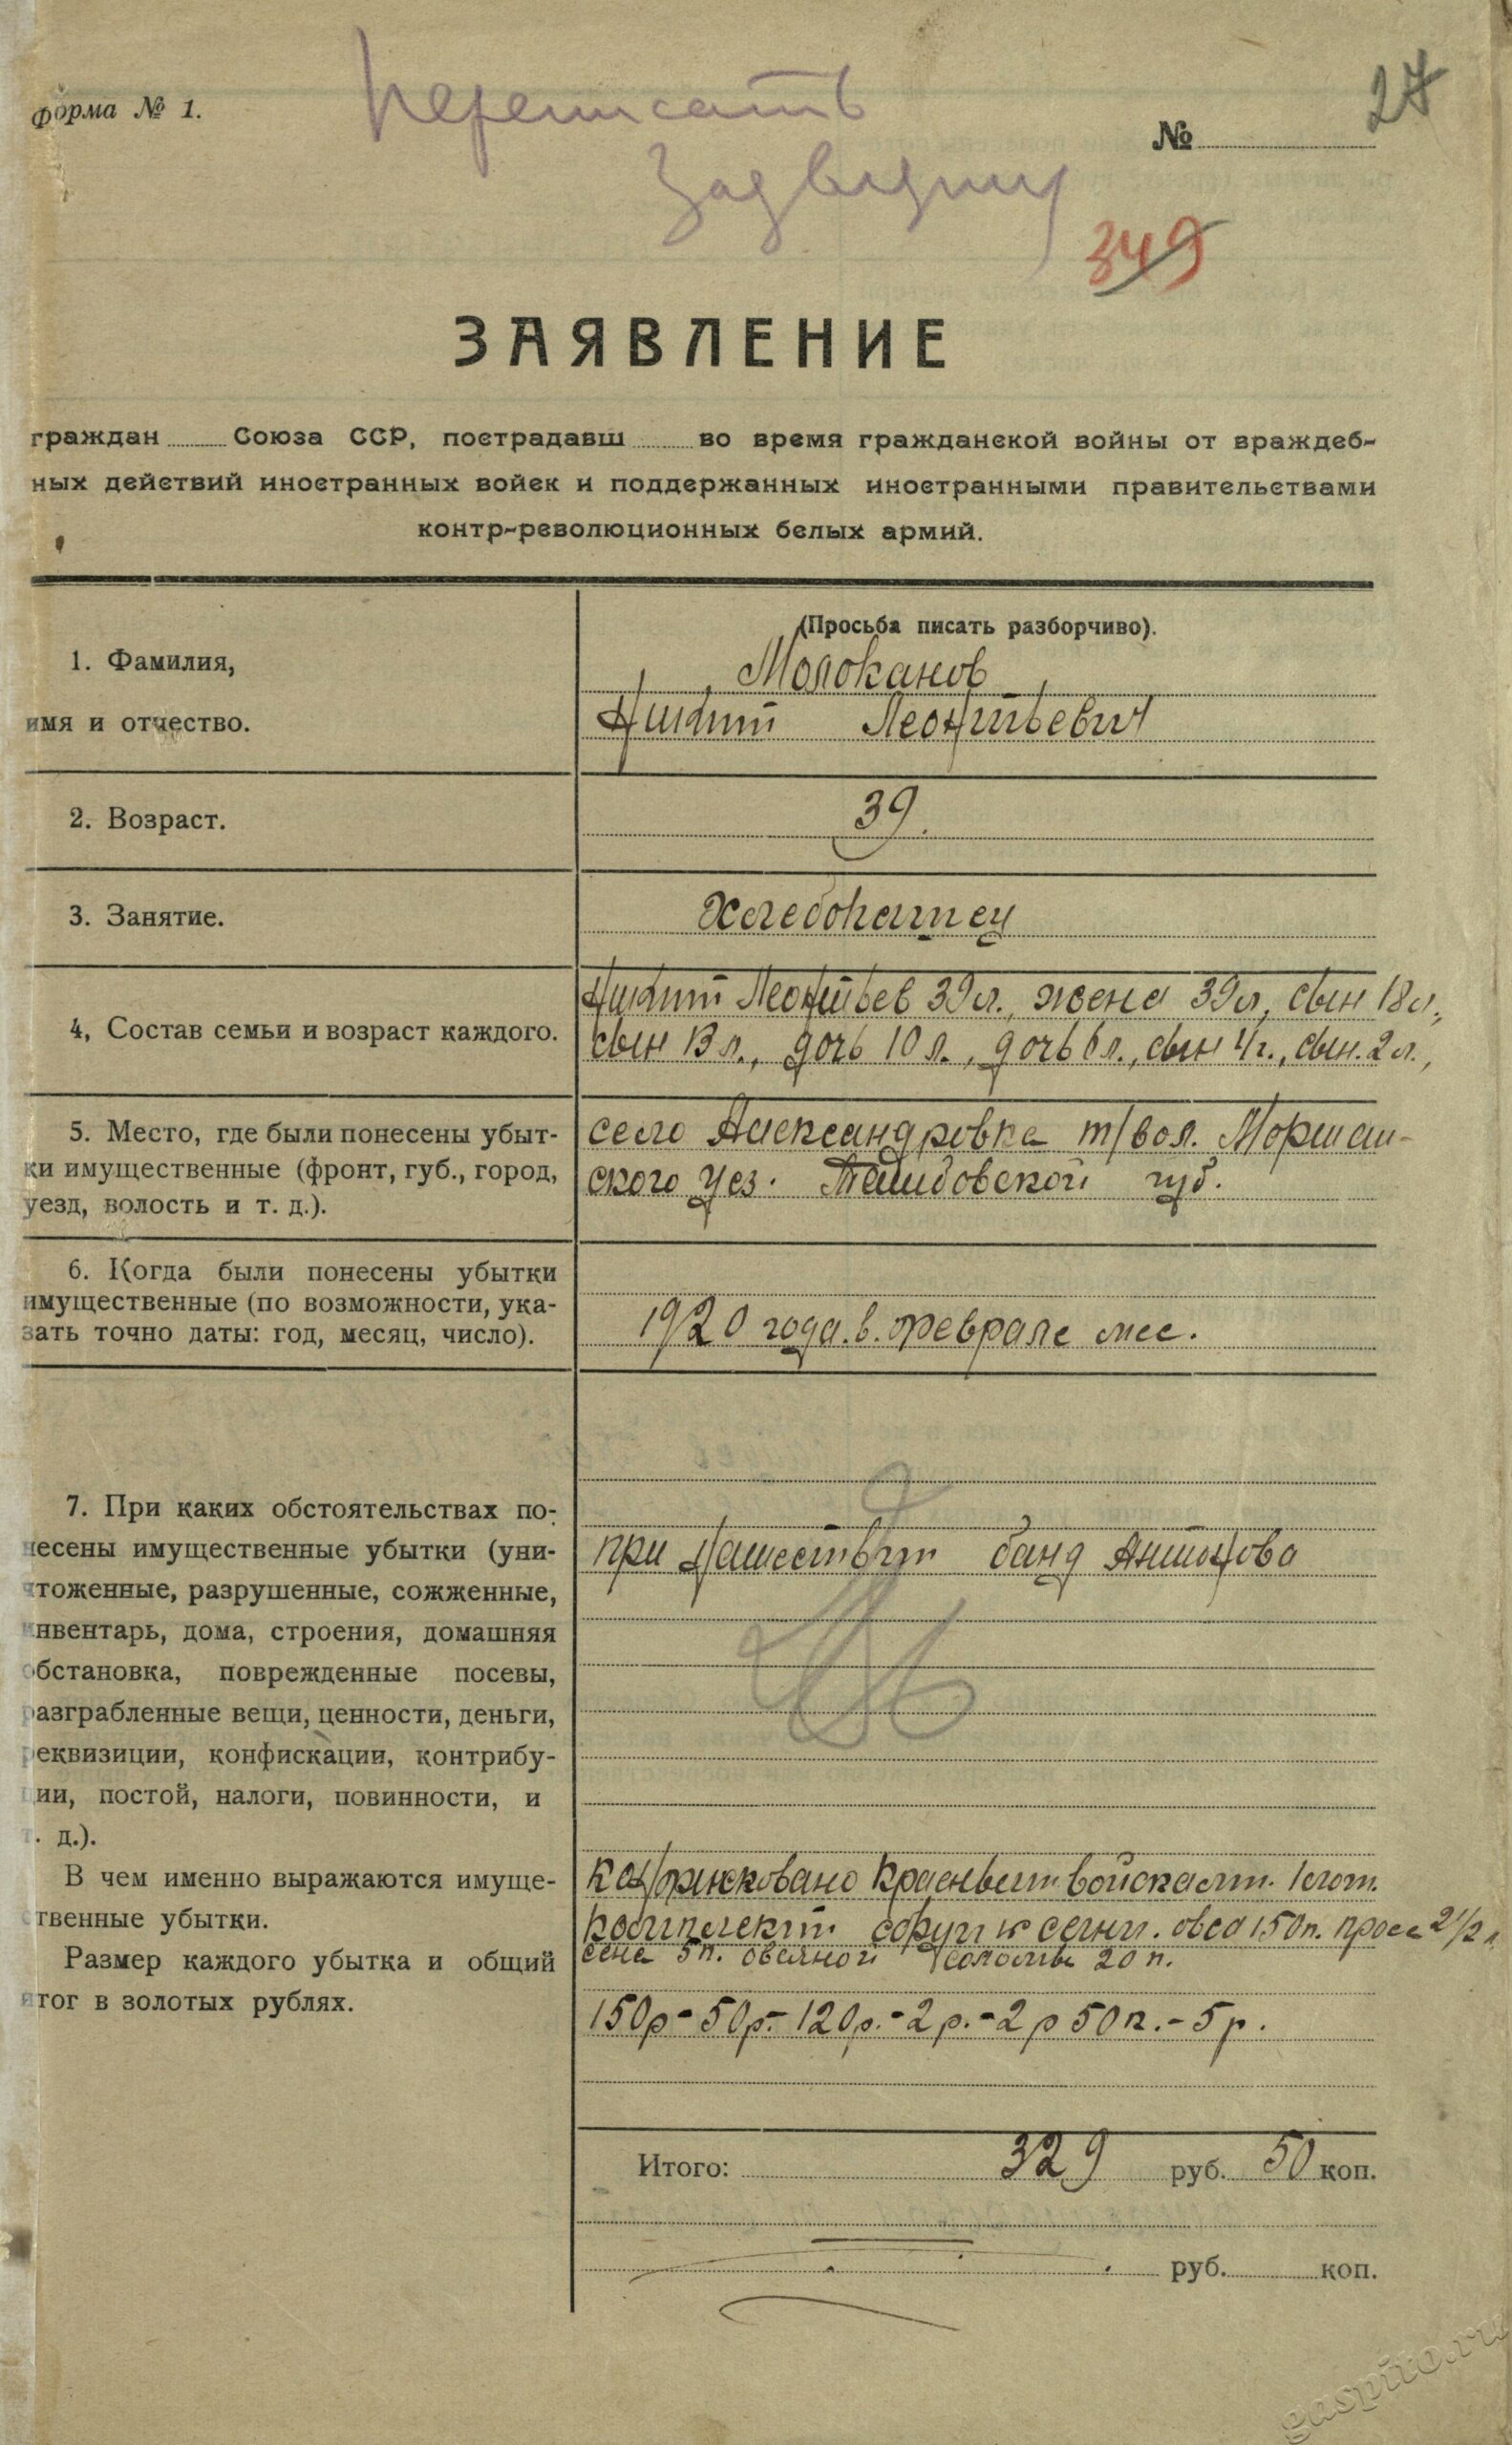 Форма № 1.
Переписать
27
№
349
ЗАЯВЛЕНИЕ
граждан Союза ССР, пострадавш во время гражданской войны от враждеб-
ных действий иностранных войск и поддержанных иностранными правительствами
контр-революционных белых армий.
(Просьба писать разборчиво).
1. Фамилия,
имя и отчество.
Молоканов
Никит Леонтьевич
2. Возраст.
39.
3. Занятие.
Хлебопашец
4, Состав семьи и возраст каждого.
Никит Леонтьев 39 л., жена 39 л, сын 18 л.,
сын 13 л., дочь 10 л., дочь 6 л., сын 4 г., сын. 2 л.,
5. Место, где были понесены убыт-
ки имущественные (фронт, губ., город,
уезд, волость и т. д.).
село Александровка т/вол. Моршан-
ского уез. Тамбовской губ.
6. Когда были понесены убытки
имущественные (по возможности, ука-
зать точно даты: год, месяц, число).
1920 года. в. феврале мес.
7. При каких обстоятельствах по-
несены имущественные убытки (уни-
чтоженные, разрушенные, сожженные,
инвентарь, дома, строения, домашняя
обстановка, поврежденные посевы,
разграбленные вещи, ценности, деньги,
реквизиции, конфискации, контрибу-
ции, постой, налоги, повинности, и
т. д.).
при нашествии банд Антонова
В чем именно выражаются имуще-
ственные убытки.
Размер каждого убытка и общий
итог в золотых рублях.
Красным войскам.
комплект сбруи овса 150 п. проса 2 1/2 п
сена 5 п. овсяной соломы 20 п.
150 р - 50 р. - 120 р. - 2 р. - 2 р 50 к. - 5 р.
Итого: 329 руб. 50 коп.
руб. коп.
gaspito.ru